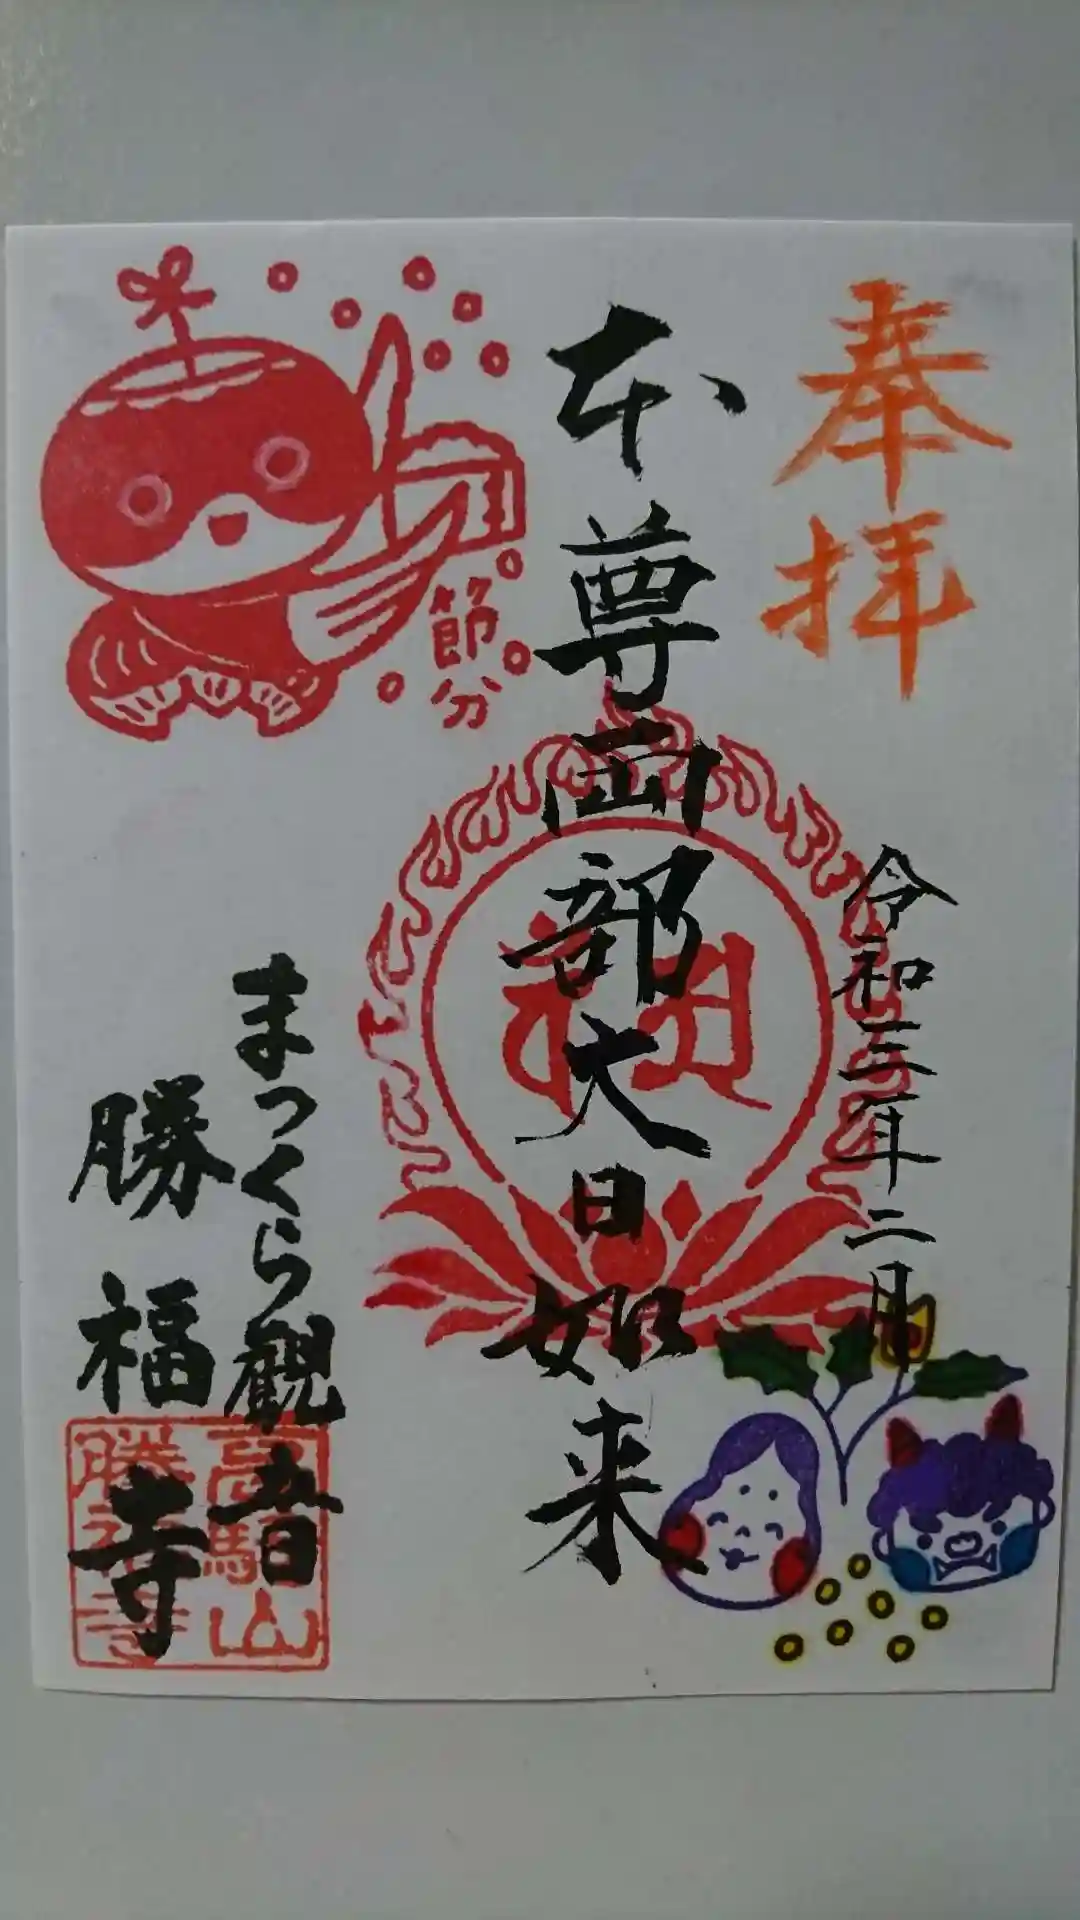 奉拝
令和三年二月
本尊両部大日如来
節分
まっくら観音
勝福寺
高駒山
勝福寺